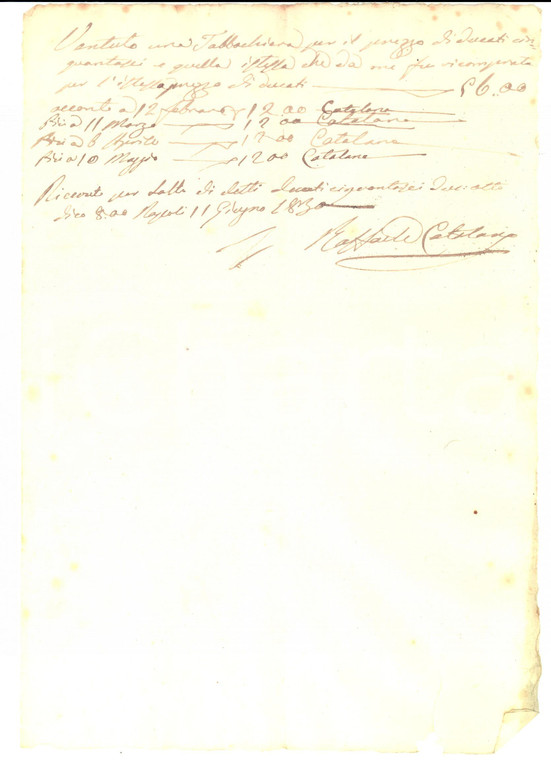 Vantuto una Tabbachiera per il prezzo di ducati cin=
quantasei e quella istessa che da me fu ricomperata
per l'istesso prezzo di ducati 56.00
acconto a 12 febraro 12 00 Catalano
Più a 11 Marzo 12 00 Catalano
Più a 8 Aprile 12 00 Catalano
Più a 10 Maggio 12 00 Catalano
Ricevuto per saldo di detti ducati cinquantasei ducati otto
dico 8.00 Napoli 11 Giugno 1830
Raffaele Catalano